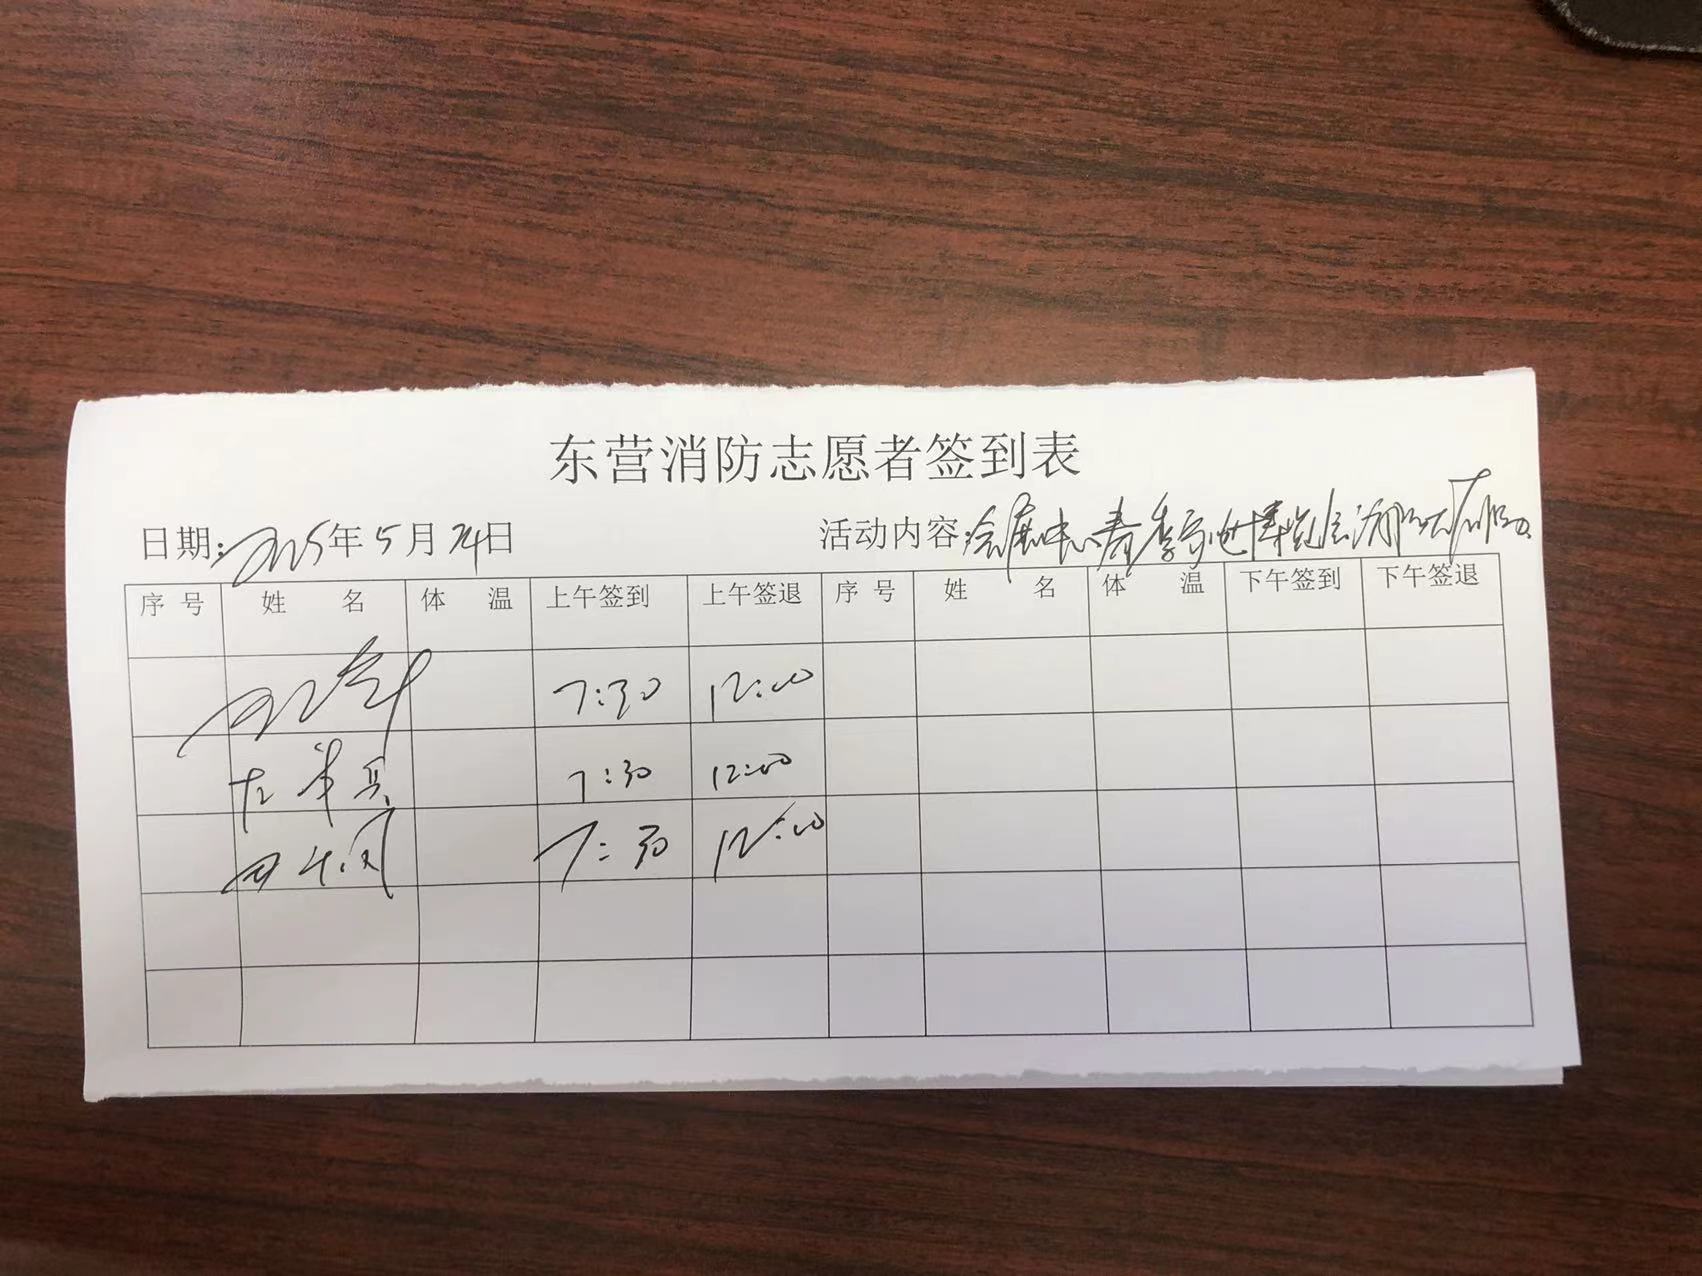 东营消防志愿者签到表
日期:2025年5月24日 活动内容:会展中心春季
序号 姓名 体温 上午签到 上午签退 序号 姓名 体温 下午签到 下午签退
7:30 12:00
7:30 12:00
7:30 12:00